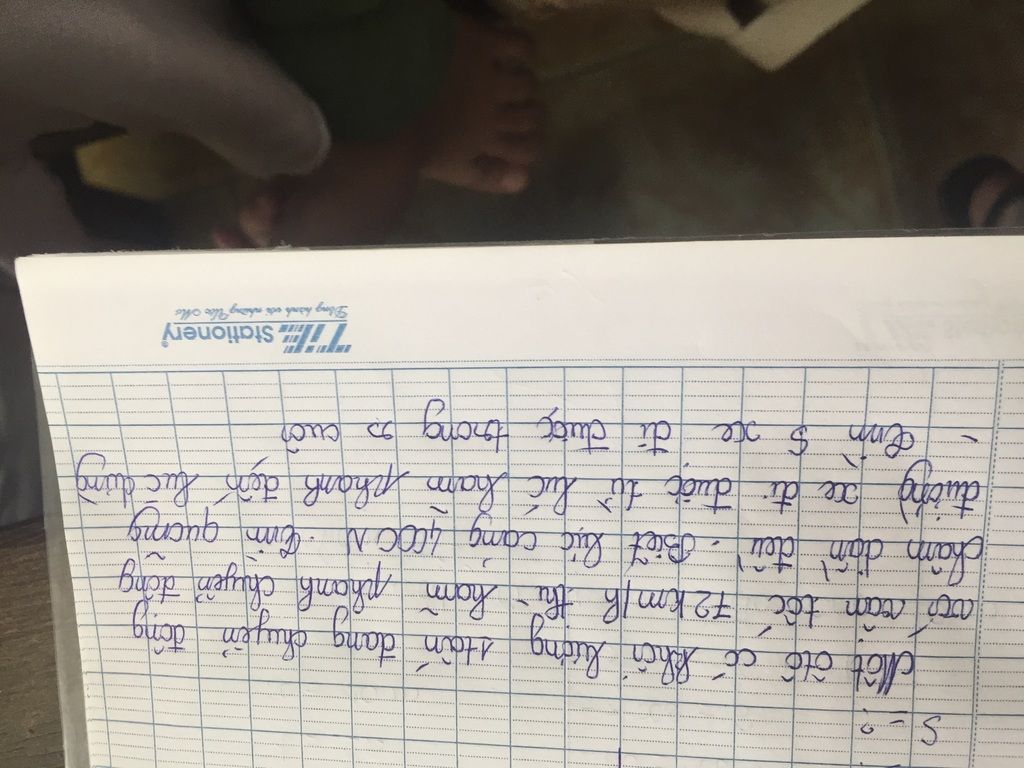 S = ?
Một ôtô có khối lượng 1 tấn đang chuyển động
với vận tốc 72 km/h thì hãm phanh chuyển động
chậm dần đều. Biết lực cảng 4000 N. Tính quãng
đường xe đi được từ lúc hãm phanh đến lúc dừng
- Tính S xe đi được trong 2s cuối
TTL Stationery
Đồng hành với những Ước Mơ